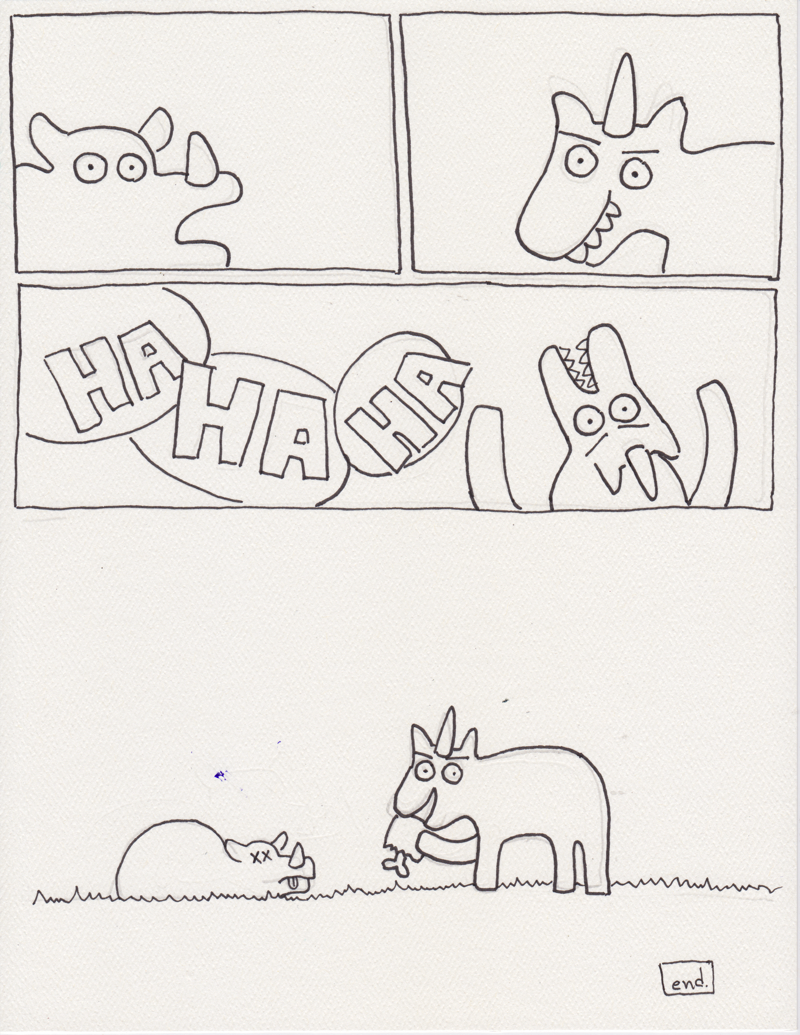 HA
HA
HA
end.